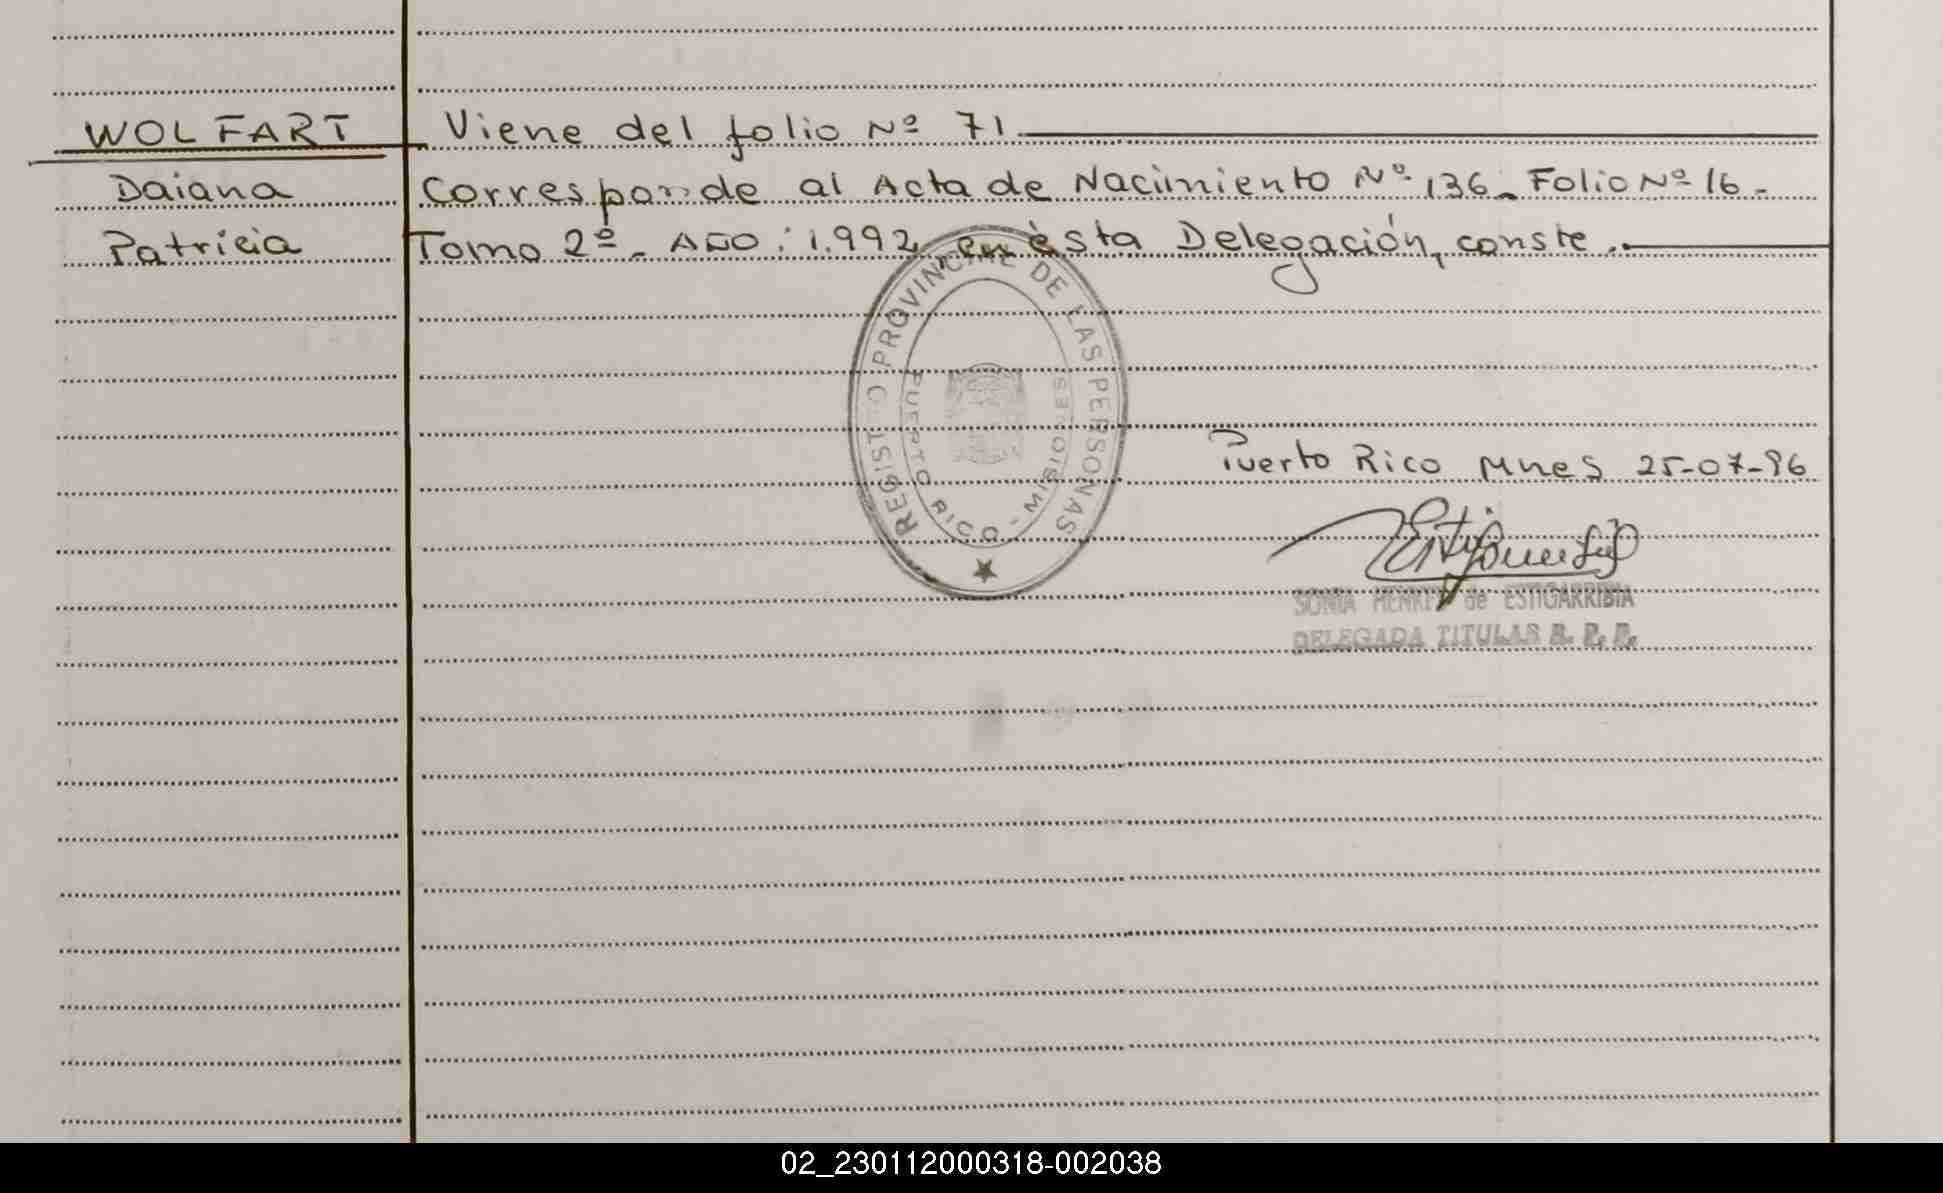 WOLFART Viene del folio Nº 71
Daiana Corresponde al Acta de Nacimiento Nº 136_ Folio Nº 16 -
Patricia Tomo 2º - Año: 1.992 en ésta Delegación, conste.
REGISTRO PROVINCIAL DE LAS PERSONAS
PUERTO RICO - MISIONES
Puerto Rico Mnes 25-07-96
SONIA de ESTIGARRIBIA
DELEGADA TITULAR R. P. P.
02_230112000318-002038